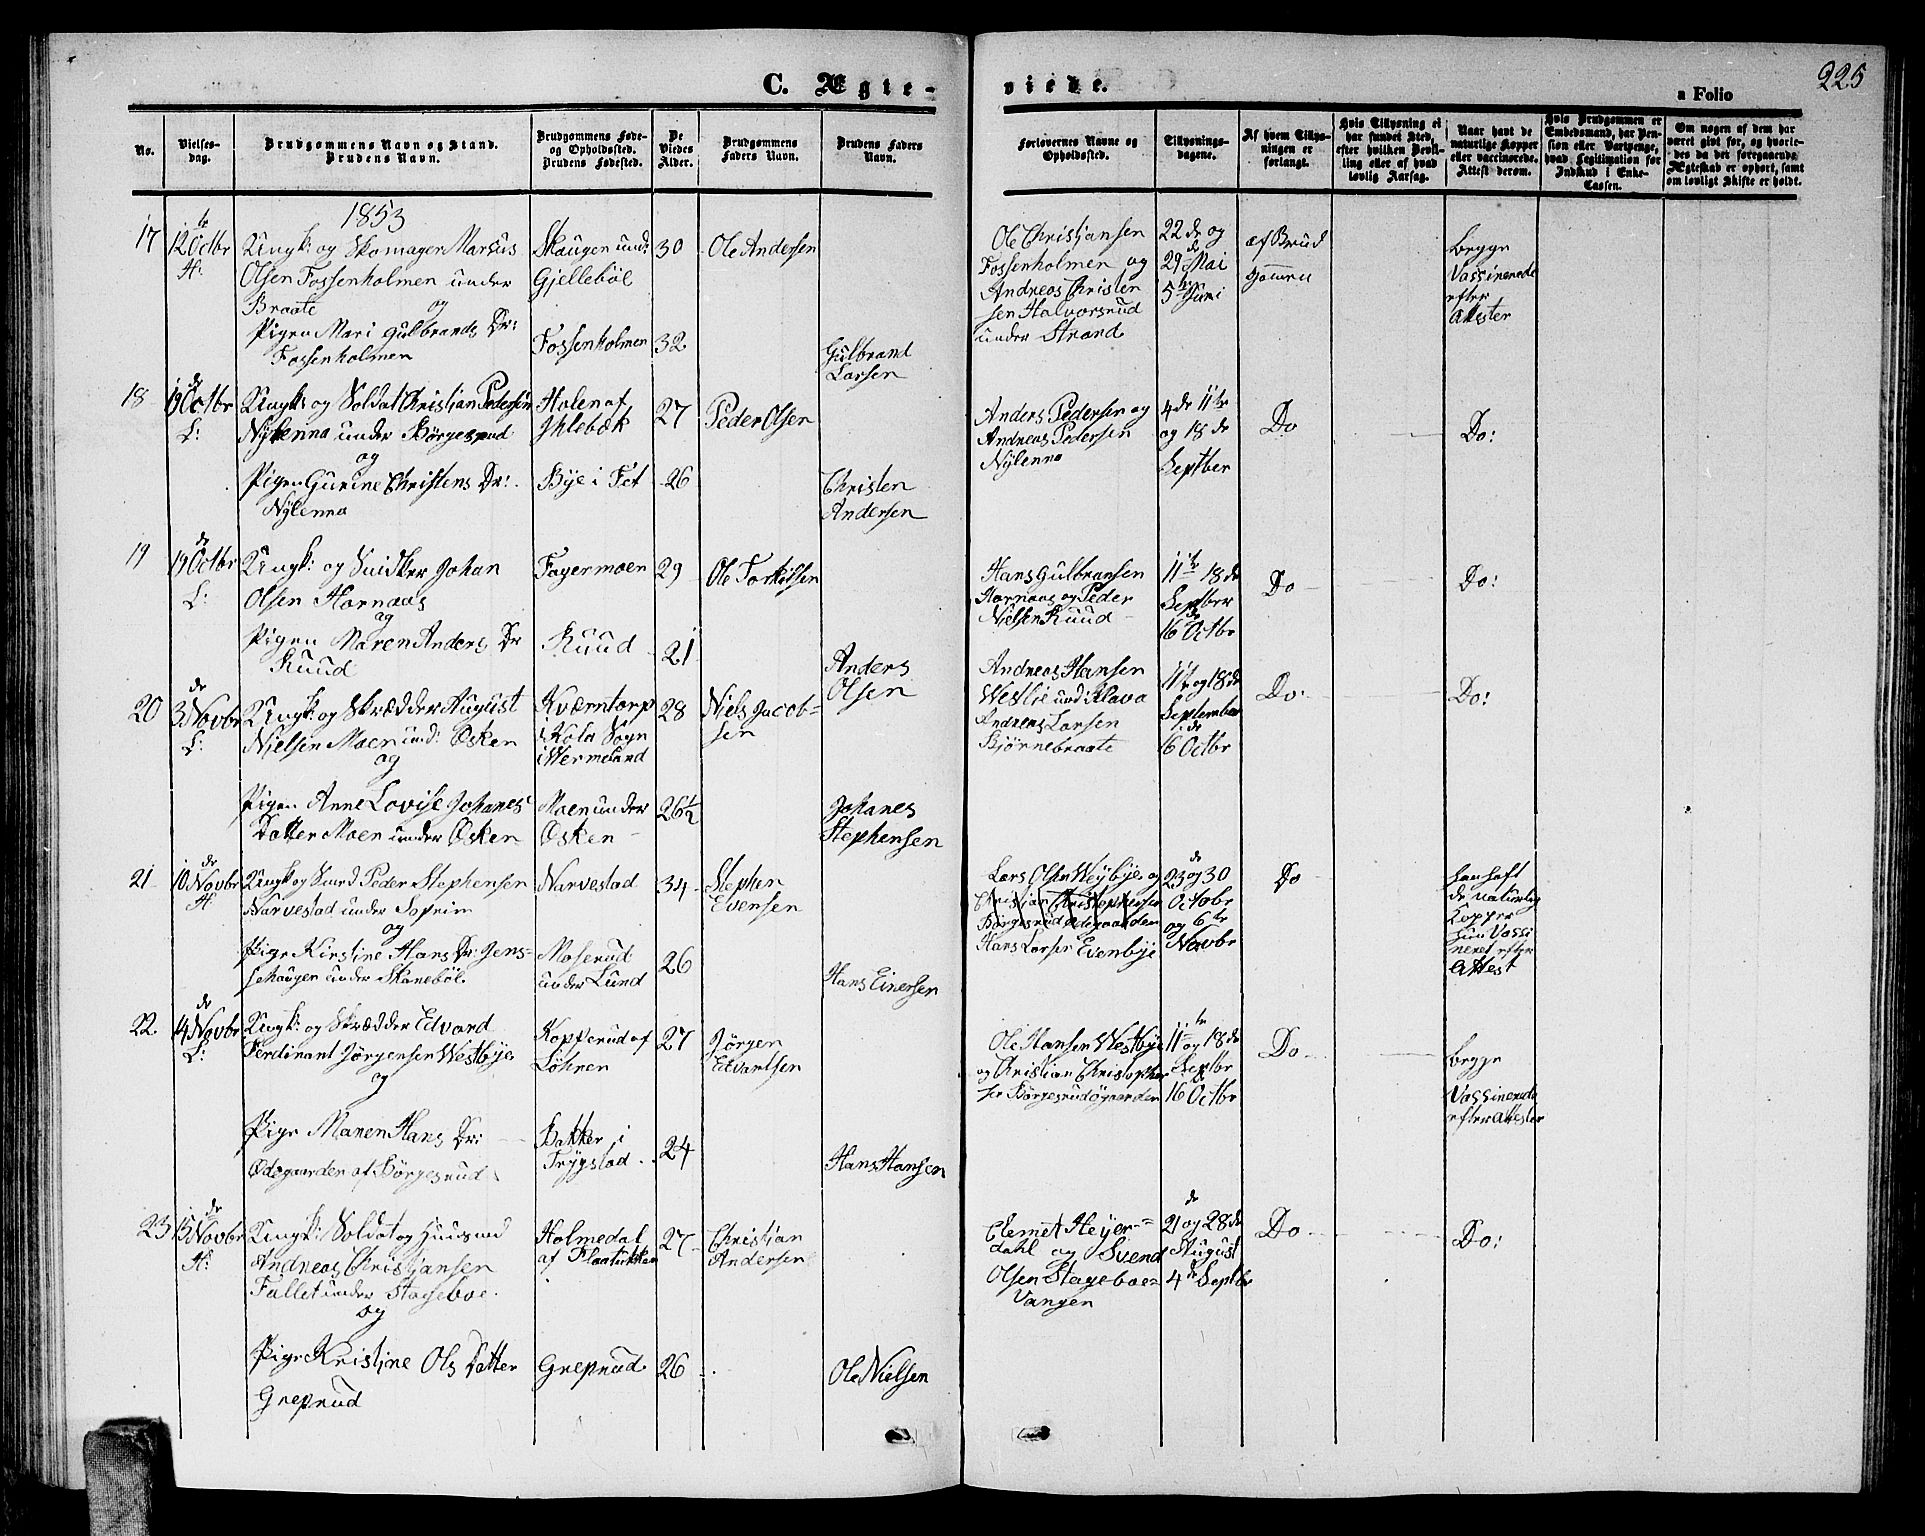 C. Ægte-
viede.
a Folio
225
No.
Vielses-
dag.
Brudgommens Navn og Stand.
Brudens Navn.
Brudgommens Føde-
og Opholdssted.
Brudens Fødested.
De
Viedes
Alder.
Brudgommens
Faders Navn.
Brudens Faders
Navn.
Forlovernes Navne og
Opholdssted.
Tillysnings-
dagene.
Af hvem Tillys-
ningen er
forlangt.
Hvis Tillysning ei
har fundet Sted,
efter hvilken Bevil-
ling eller af hvad
lovlig Aarsag.
Naar havt de
naturlige Kopper
eller vaccinerede.
Attest derom.
Hvis Brudgommen er
Embedsmand, har Pen-
sion eller Vartpenge,
hvad Legitimation for
Indskud i Enke-
Cassen.
Om nogen af dem har
været gift for, og hvorle-
des da det foregaaende
Ægteskab er ophørt, samt
om lovligt Skifte er holdt.
1853
17
12te Octbr
H:
Ungk: og Skomager Marcus
Olsen Fossenholmen under
Braate
og
Pigen Mari Gulbrands Dr:
Fossenholmen
Skaugen und:
Gjellebøl
Fossenholmen
30
32
Ole Andersen
Gulbrand
Larsen
Ole Christjansen
Fossenholmen og
Andreas Christen
sen Halvorsrud
under Strand
22de og
29de Mai
5te Juni
af Brud
gomen
begge
Vassinerede
efter
Attester
18
19de Octbr
L:
Ungk: og Soldat Christian Pedersen
Nylenna under Børgesrud
og
Pigen Gurine Christens Dr:
Nylenna
Holen af
Ihlebæk
Bye i Fet
27
26
Peder Olsen
Christen
Andersen
Anders Pedersen og
Andreas Pedersen
Nylenna
4de 11te
og 18de
Septber
Do
Do:
19
19de Octbr
L:
Ungk: og Snidker Johan
Olsen Hornaas
og
Pigen Maren Anders Dr
Ruud
Fagermoen
Ruud
29
21
Ole Torkilsen
Anders
Olsen
Hans Gulbransen
Hornaas og Peder
Nielsen Ruud
11te 18de
Septber
16de Octbr
Do
Do:
20
3de Novbr
L:
Ungk: og Skrædder August
Nielsen Moen und: Øsken
og
Pigen Anne Lovise Johanes
Datter Moen under Øsken
Kværntorp
i Köla Sogn
i Wermeland
Moen under
Øsken
28
26½
Niels Jacob-
sen
Johanes
Stephensen
Andreas Hansen
Westlie und: Klava
Andreas Larsen
Bjørnebraate
11te og 18de
September
16de Octbr
Do:
Do:
21
10de Novbr
H:
Ungk og Smed Peder Stephensen
Narvestad under Soprim
og
Pige Kirstine Hans Dr: Jens-
sehaugen under Skanebøl
Narvestad
Moserud
under Lund
34
26
Stephen
Evensen
Hans Einersen
Lars Olsen Weybye og
Christian Christophersen
Børgesrud ødegaarden
Hans Larsen Evenbye
23de og 30
Octobr
og 6te
Novbr
Do
han haft
de naturlig
Kopper
hun Vassi
neret efter
Attest
22
14de Novbr
L:
Ungk: og Skrædder Edvard
Ferdinant Jørgensen Westbye
og
Pige Maren Hans Dr:
Ødegaarden af Børgesrud
Kopperud af
Løhren
Bakker i
Trygstad
27
24
Jørgen
Edvartsen
Hans Hansen
Ole Hansen Westbye
og Christian Christopher
sen Børgesrudøgaarden
11te og 18de
Septbr
16de Octbr
Do
begge
Vassinerede
efter Attester
23
15de Novbr
H:
Ungk: Soldat og Huusmd
Andreas Christjansen
Fallet under Stageboe
og
Pige Kristine Ols Datter
Grepsrud
Holmedal
Grepsrud
27
26
Christian
Andersen
Ole Nielsen
Clemet Heyer-
dahl og Svend
Olsen Stageboe-
Vangen
21de og 28de
August
4de Septbr
Do
Do: